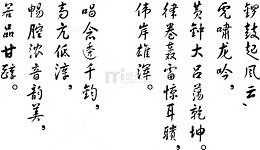 锣鼓起风云、
虎啸龙吟，
黄钟大吕荡乾坤。
律卷轰雷惊耳聩，
伟岸雄浑。
唱念逸千钧，
高亢低淳，
畅腔浓音韵美，
若品甘醇。